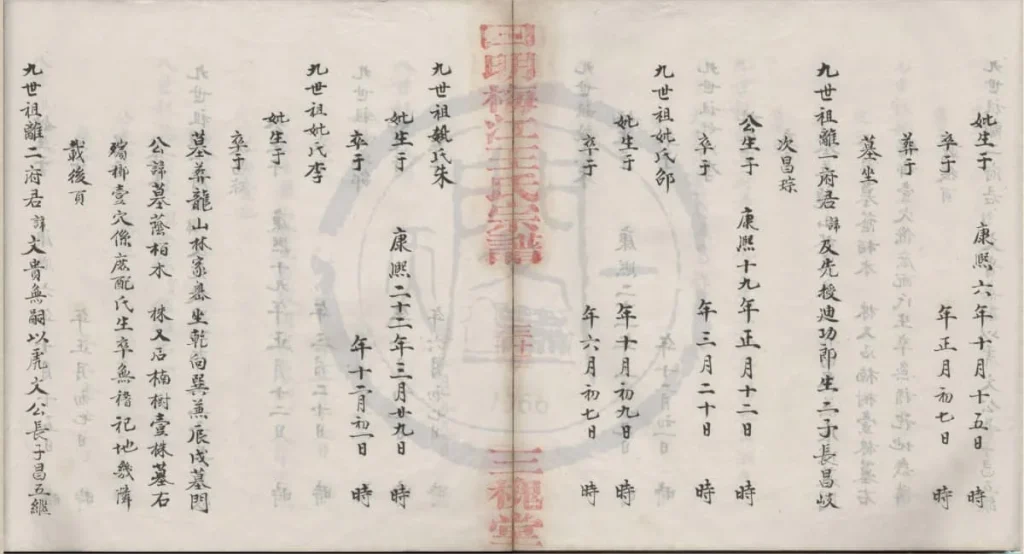 妣生于　康熙六年十月十五日　時
卒于　年正月初七日　時
葬于
墓坐
九世祖離一府君諱及先授迪功郎生二子長昌岐
次昌琮
公生于　康熙十九年正月十二日　時
卒于　年三月二十日　時
九世祖妣氏邵
妣生于　年十月初九日　時
卒于　年六月初七日　時
四明梅江王氏宗譜
三槐堂
九世祖妣氏朱
妣生于　康熙二十二年三月廿九日　時
卒于　年十二月初一日　時
九世祖妣氏李
妣生于
卒于
墓葬龍山林家番坐乾向巽兼辰戌墓門
公諱墓蔭柏木　株又店楠樹壹株墓右
壹穴係庶配氏生卒無稽祀地幾隣
載後頁
九世祖離二府君諱文貴無嗣以虎文公長子昌五繼